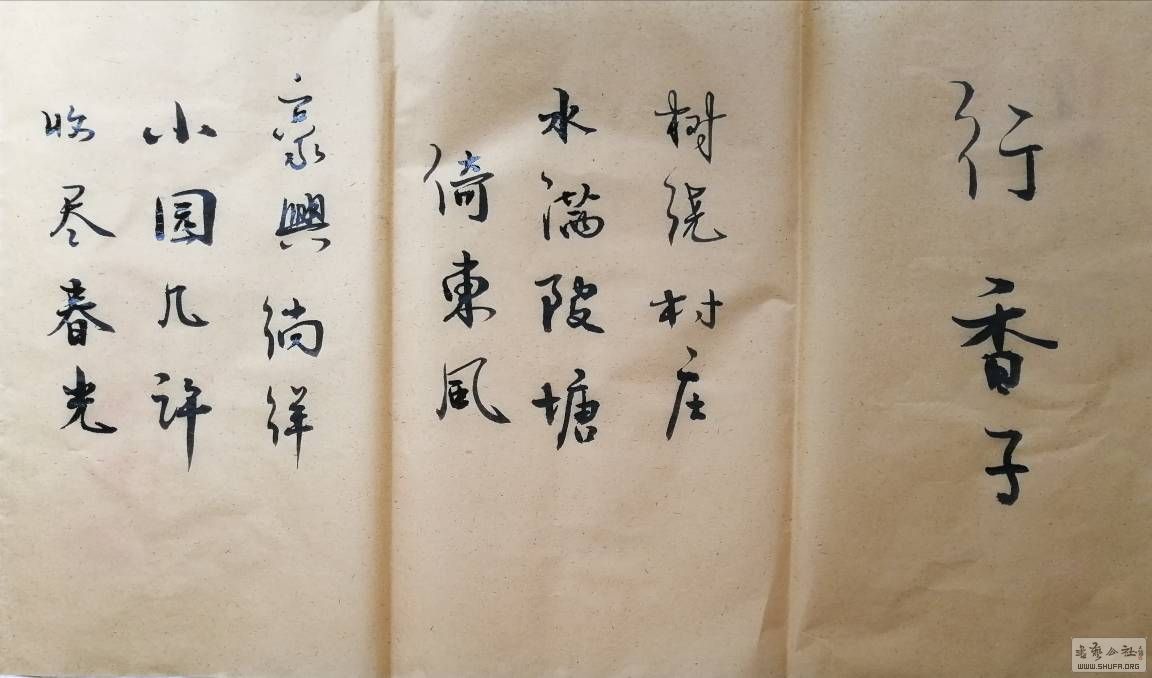 行香子
树绕村庄
水满陂塘
倚東風
豪興徜徉
小园几许
收尽春光
書藝公社
WWW.SHUFA.ORG